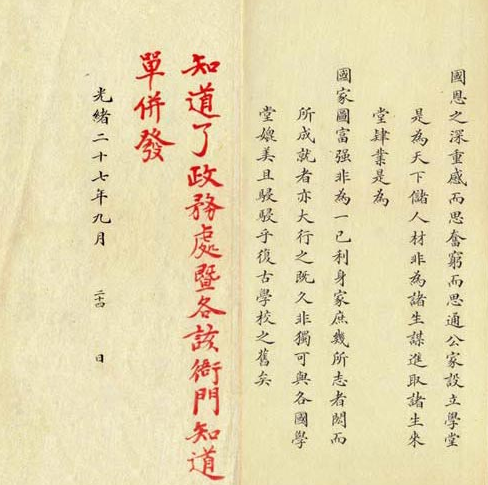 國恩之深重感而思奮窮而思通公家設立學堂
是為天下儲人材非為諸生謀進取諸生來
堂肄業是為
國家圖富强非為一己利身家庶幾所志者閎而
所成就者亦大行之既久非獨可與各國學
堂媲美且駸駸乎復古學校之舊矣
知道了政務處暨各該衙門知道
單併發
光緒二十七年九月二十四日